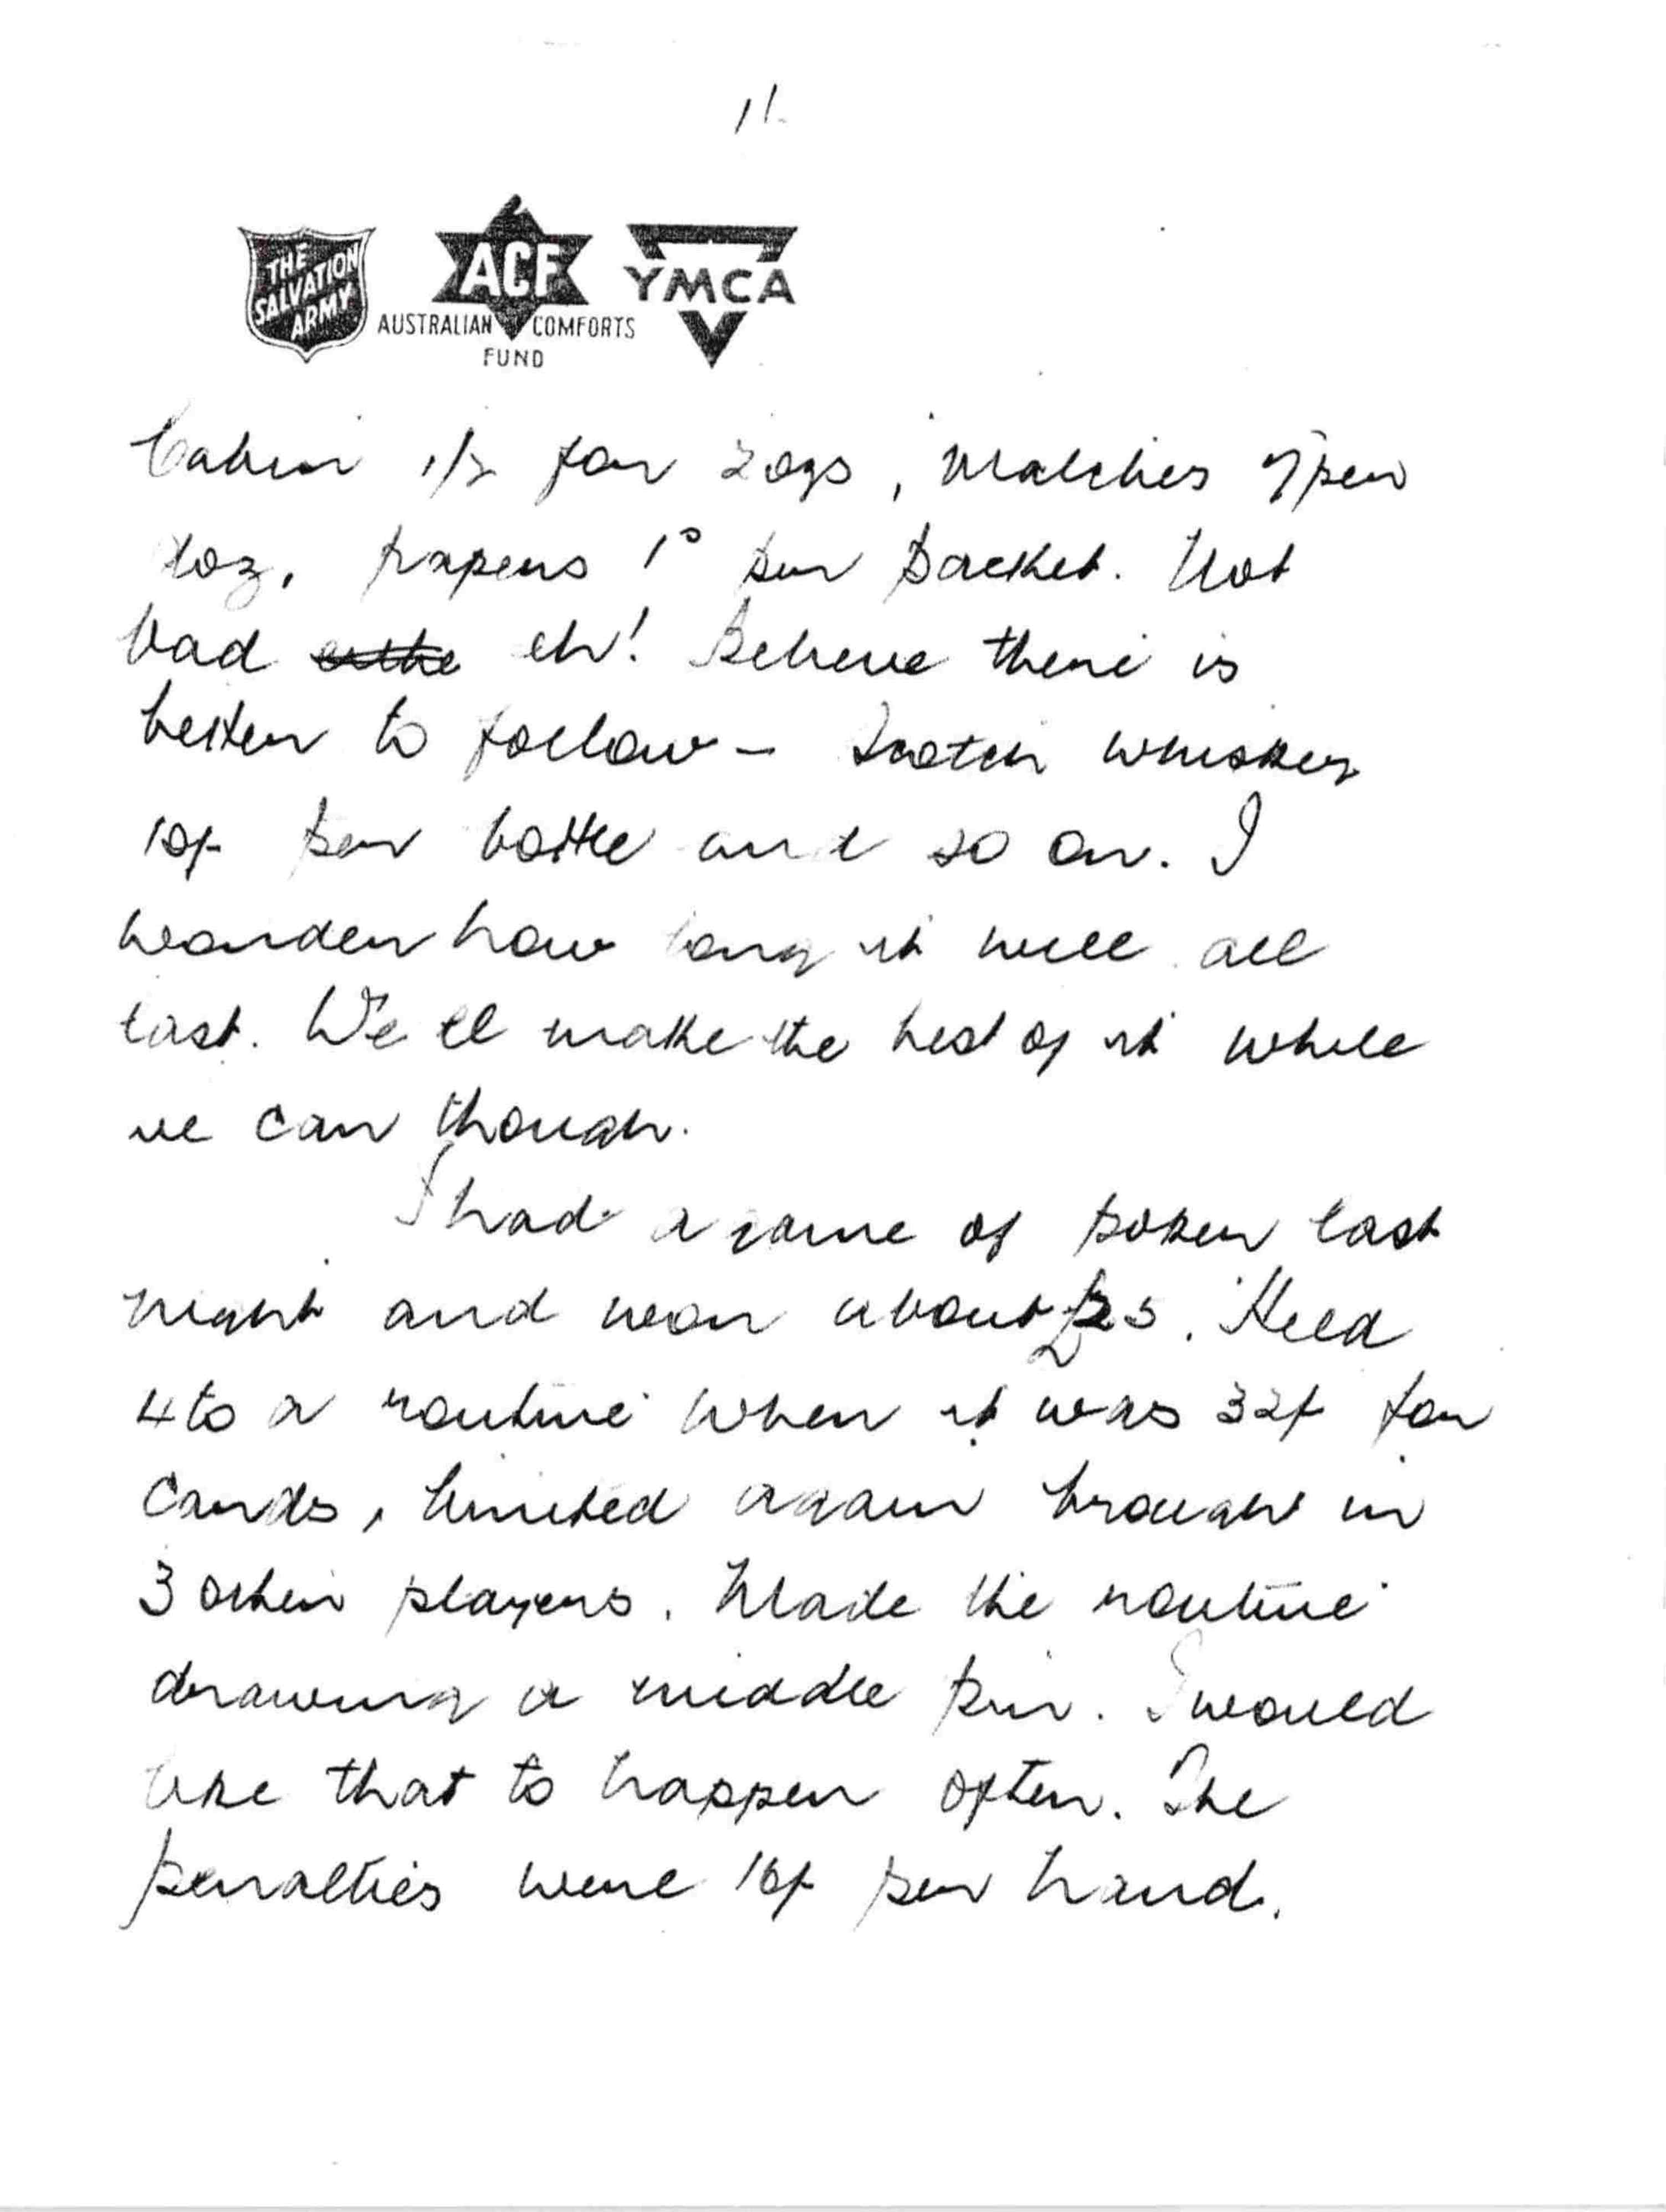 11.
THE
SALVATION
ARMY
ACF
AUSTRALIAN COMFORTS
FUND
YMCA
Cabin 1/2 for 2ozs, Matches 7 per
doz, papers 1D per packet. Not
bad eh! Believe there is
better to follow – Scotch whiskey
10/- per bottle and so on. I
wonder how long it will all
last. We'll make the best of it while
we can though.
I had a game of poker last
night and won about £25. Held
4 to a routine when it was 32/- for
cards, limited again brought in
3 other players. Made the routine
drawing a middle pin. I would
like that to happen often. The
penalties were 16/- per hand.